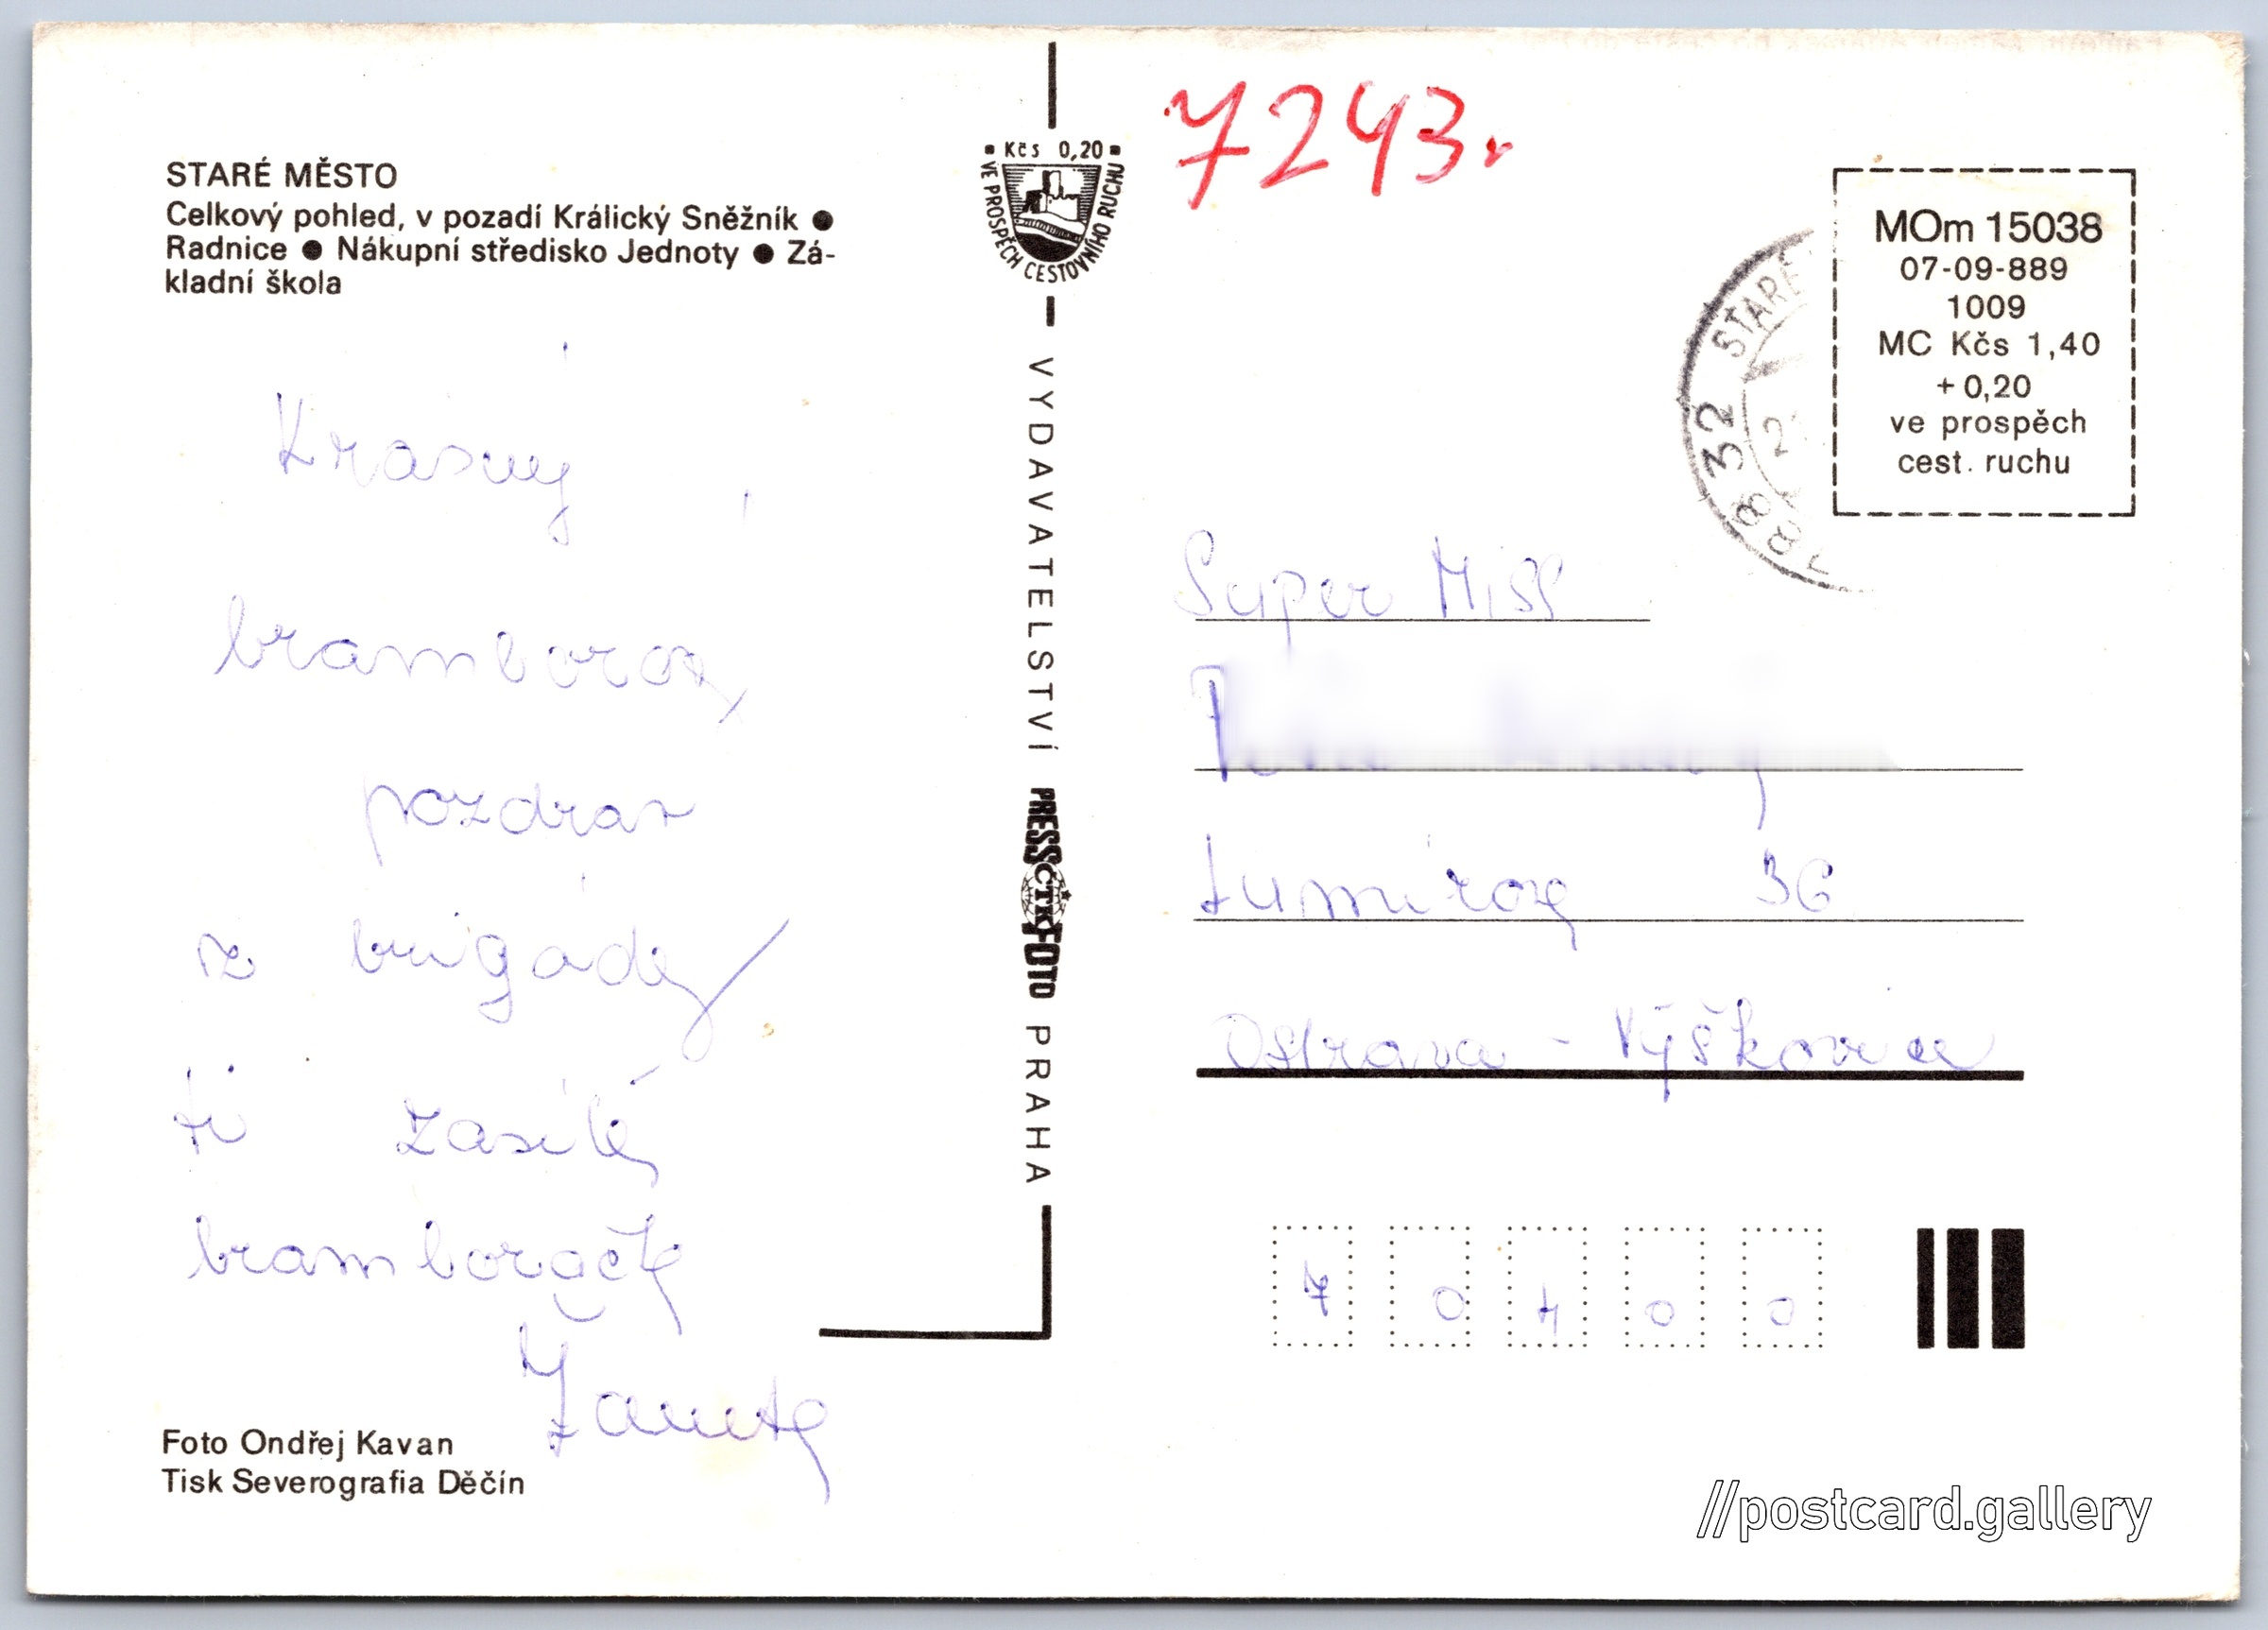 STARÉ MĚSTO
Celkový pohled, v pozadí Králický Sněžník ●
Radnice ● Nákupní středisko Jednoty ● Zá-
kladní škola
Krásný
bramborový
pozdrav
z brigády
ti zasílá
bramboračka
Žaneta
Foto Ondřej Kavan
Tisk Severografia Děčín
Kčs 0,20
VE PROSPĚCH CESTOVNÍHO RUCHU
VYDAVATELSTVÍ PRESSFOTO PRAHA
ČTK
7243
788 32 STARÉ
MOm 15038
07-09-889
1009
MC Kčs 1,40
+0,20
ve prospěch
cest. ruchu
Super Miss
Lumírova 36
Ostrava - Výškovice
70400
//postcard.gallery